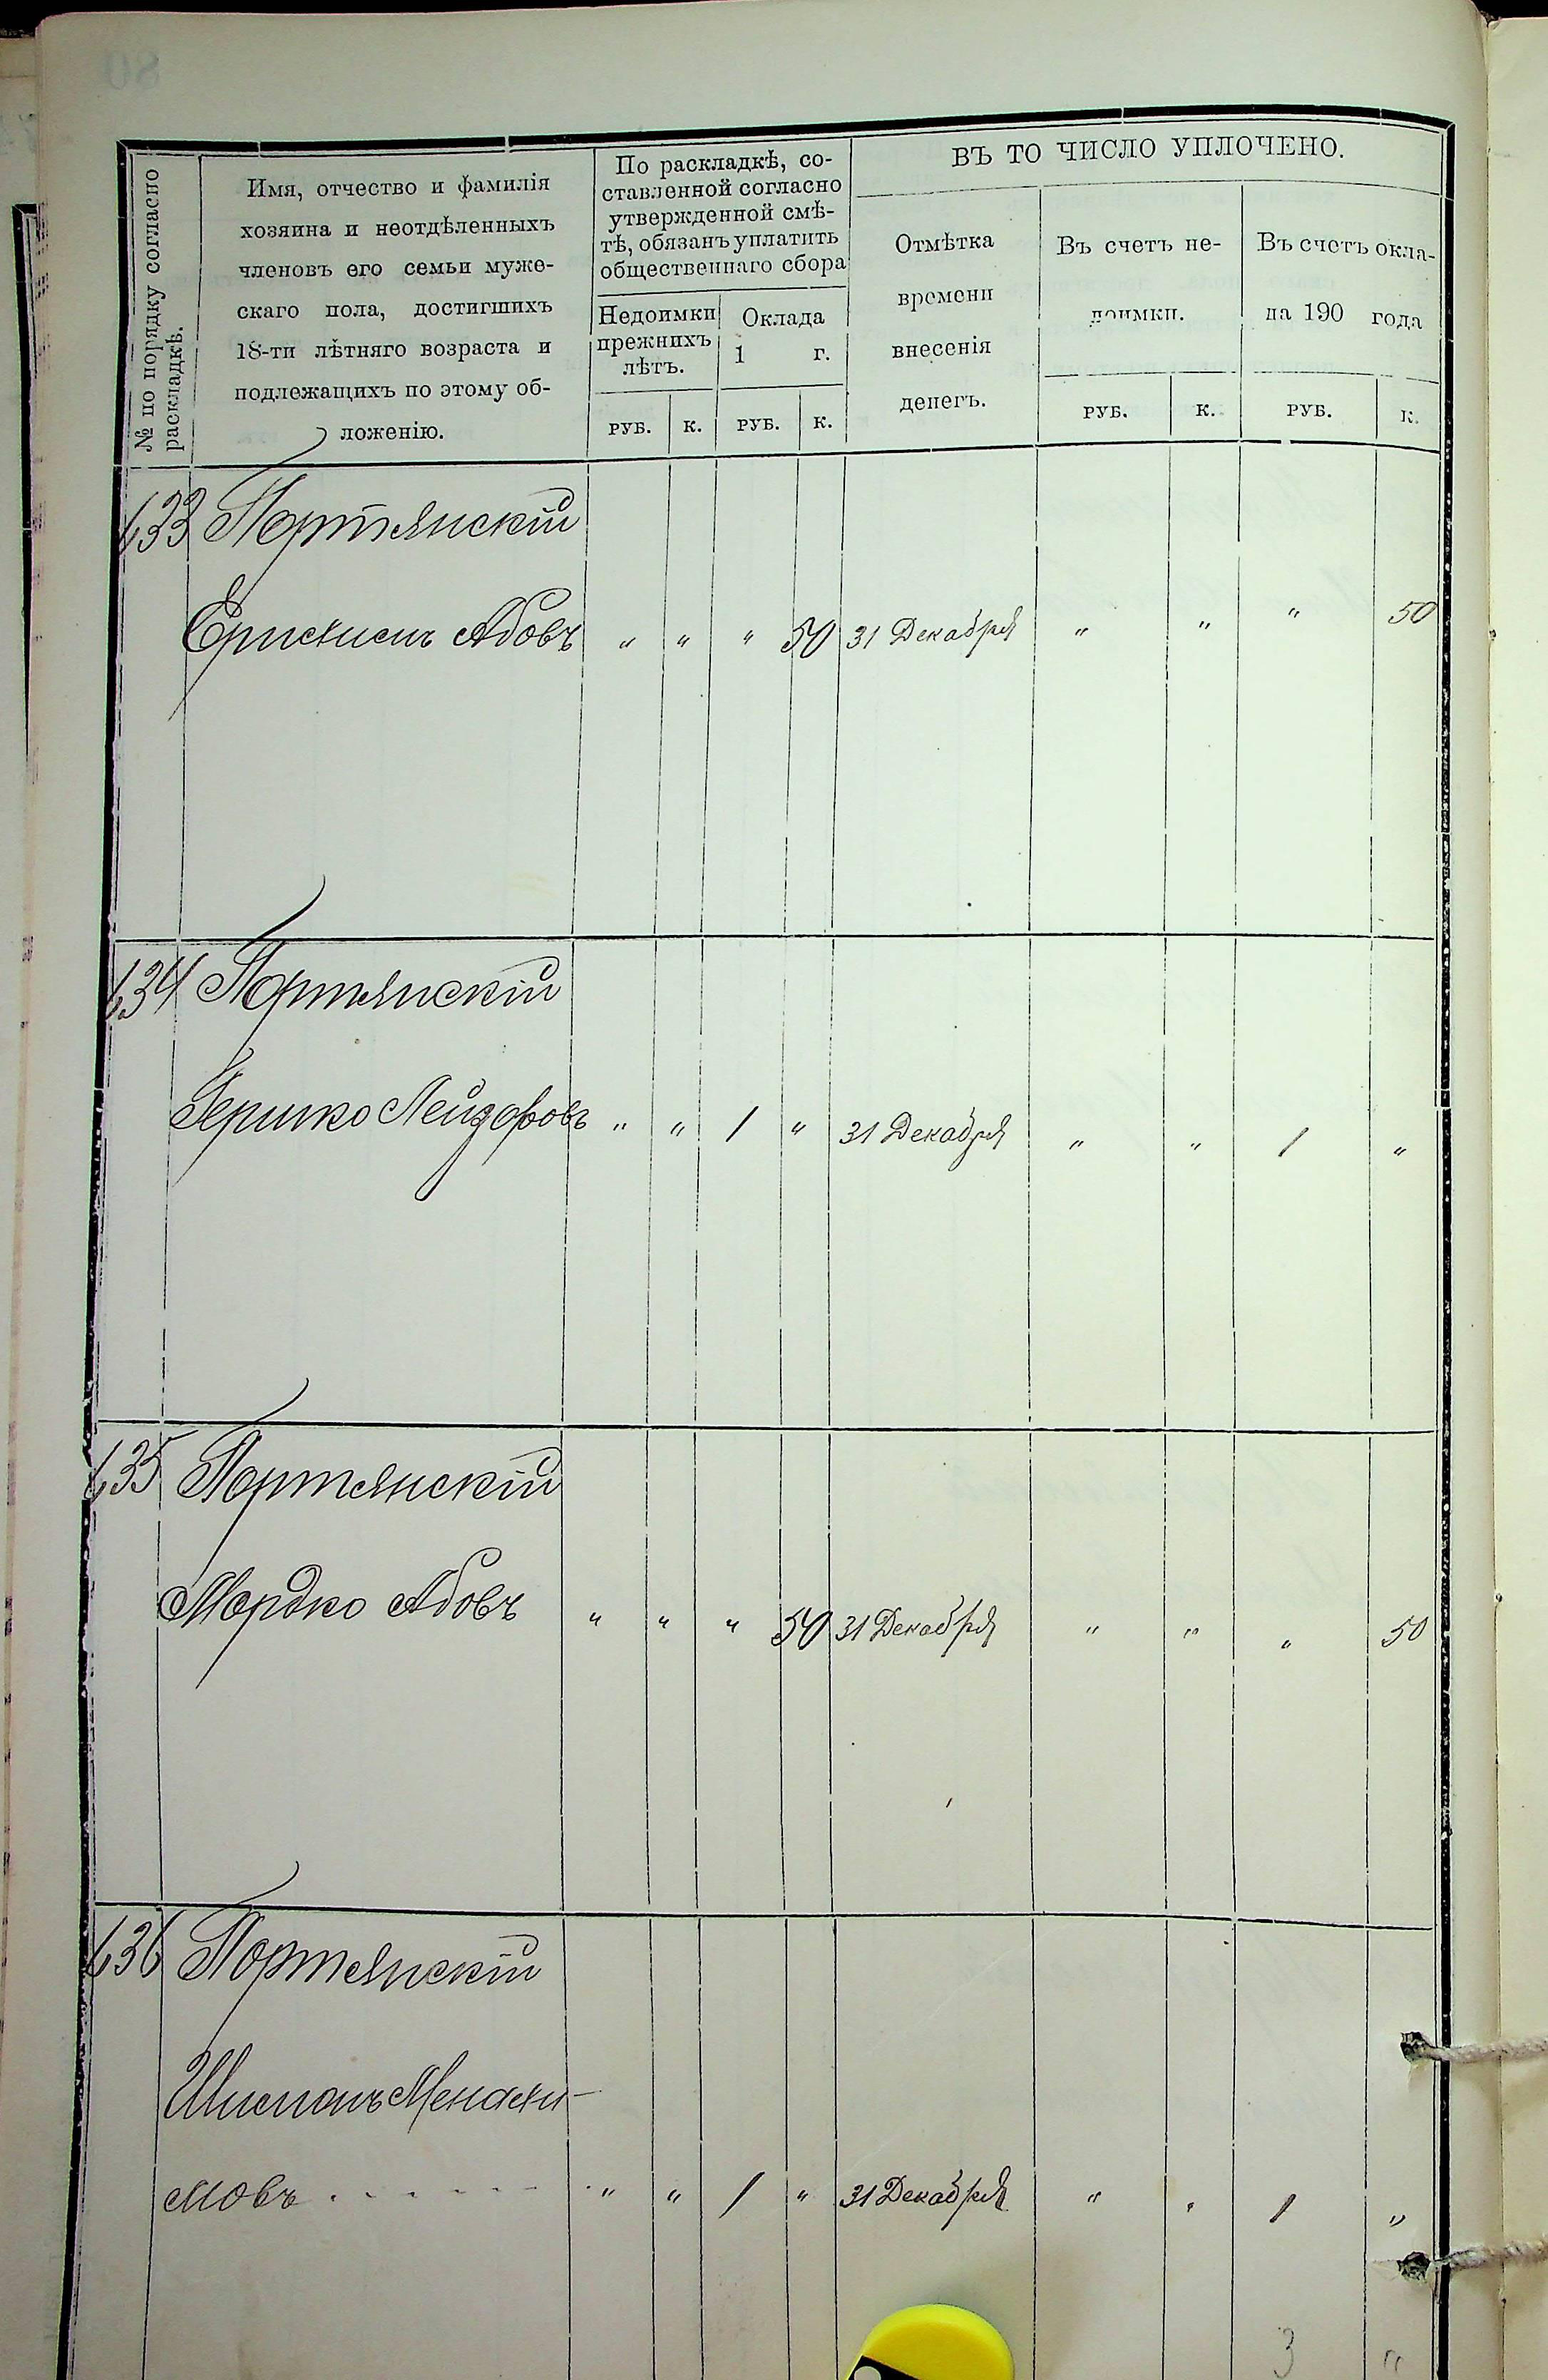 ВЪ ТО ЧИСЛО УПЛОЧЕНО.
№ по порядку согласно
раскладкѣ.
Имя, отчество и фамилія
хозяина и неотдѣленныхъ
членовъ его семьи муже-
скаго пола, достигшихъ
18-ти лѣтняго возраста и
подлежащихъ по этому об-
ложенію.
По раскладкѣ, со-
ставленной согласно
утвержденной смѣ-
тѣ, обязанъ уплатить
общественнаго сбора
Недоимки
прежнихъ
лѣтъ.
Оклада
1 г.
Отмѣтка
времени
внесенія
денегъ.
Въ счетъ не-
доимки.
Въ счетъ окла-
на 190 года
РУБ. К. РУБ. К. РУБ. К. РУБ. К.
633 Портянскій
Абовъ „ „ „ 50 31 Декабря „ „ „ 50
634 Портянскій
Гершко Лейзеровъ „ „ 1 „ 31 Декабря „ „ 1 „
635 Портянскій
Мордко Абовъ „ „ „ 50 31 Декабря „ „ „ 50
636 Портянскій
Шмеонъ Менахи-
мовъ „ „ 1 „ 31 Декабря „ „ 1 „
3 „